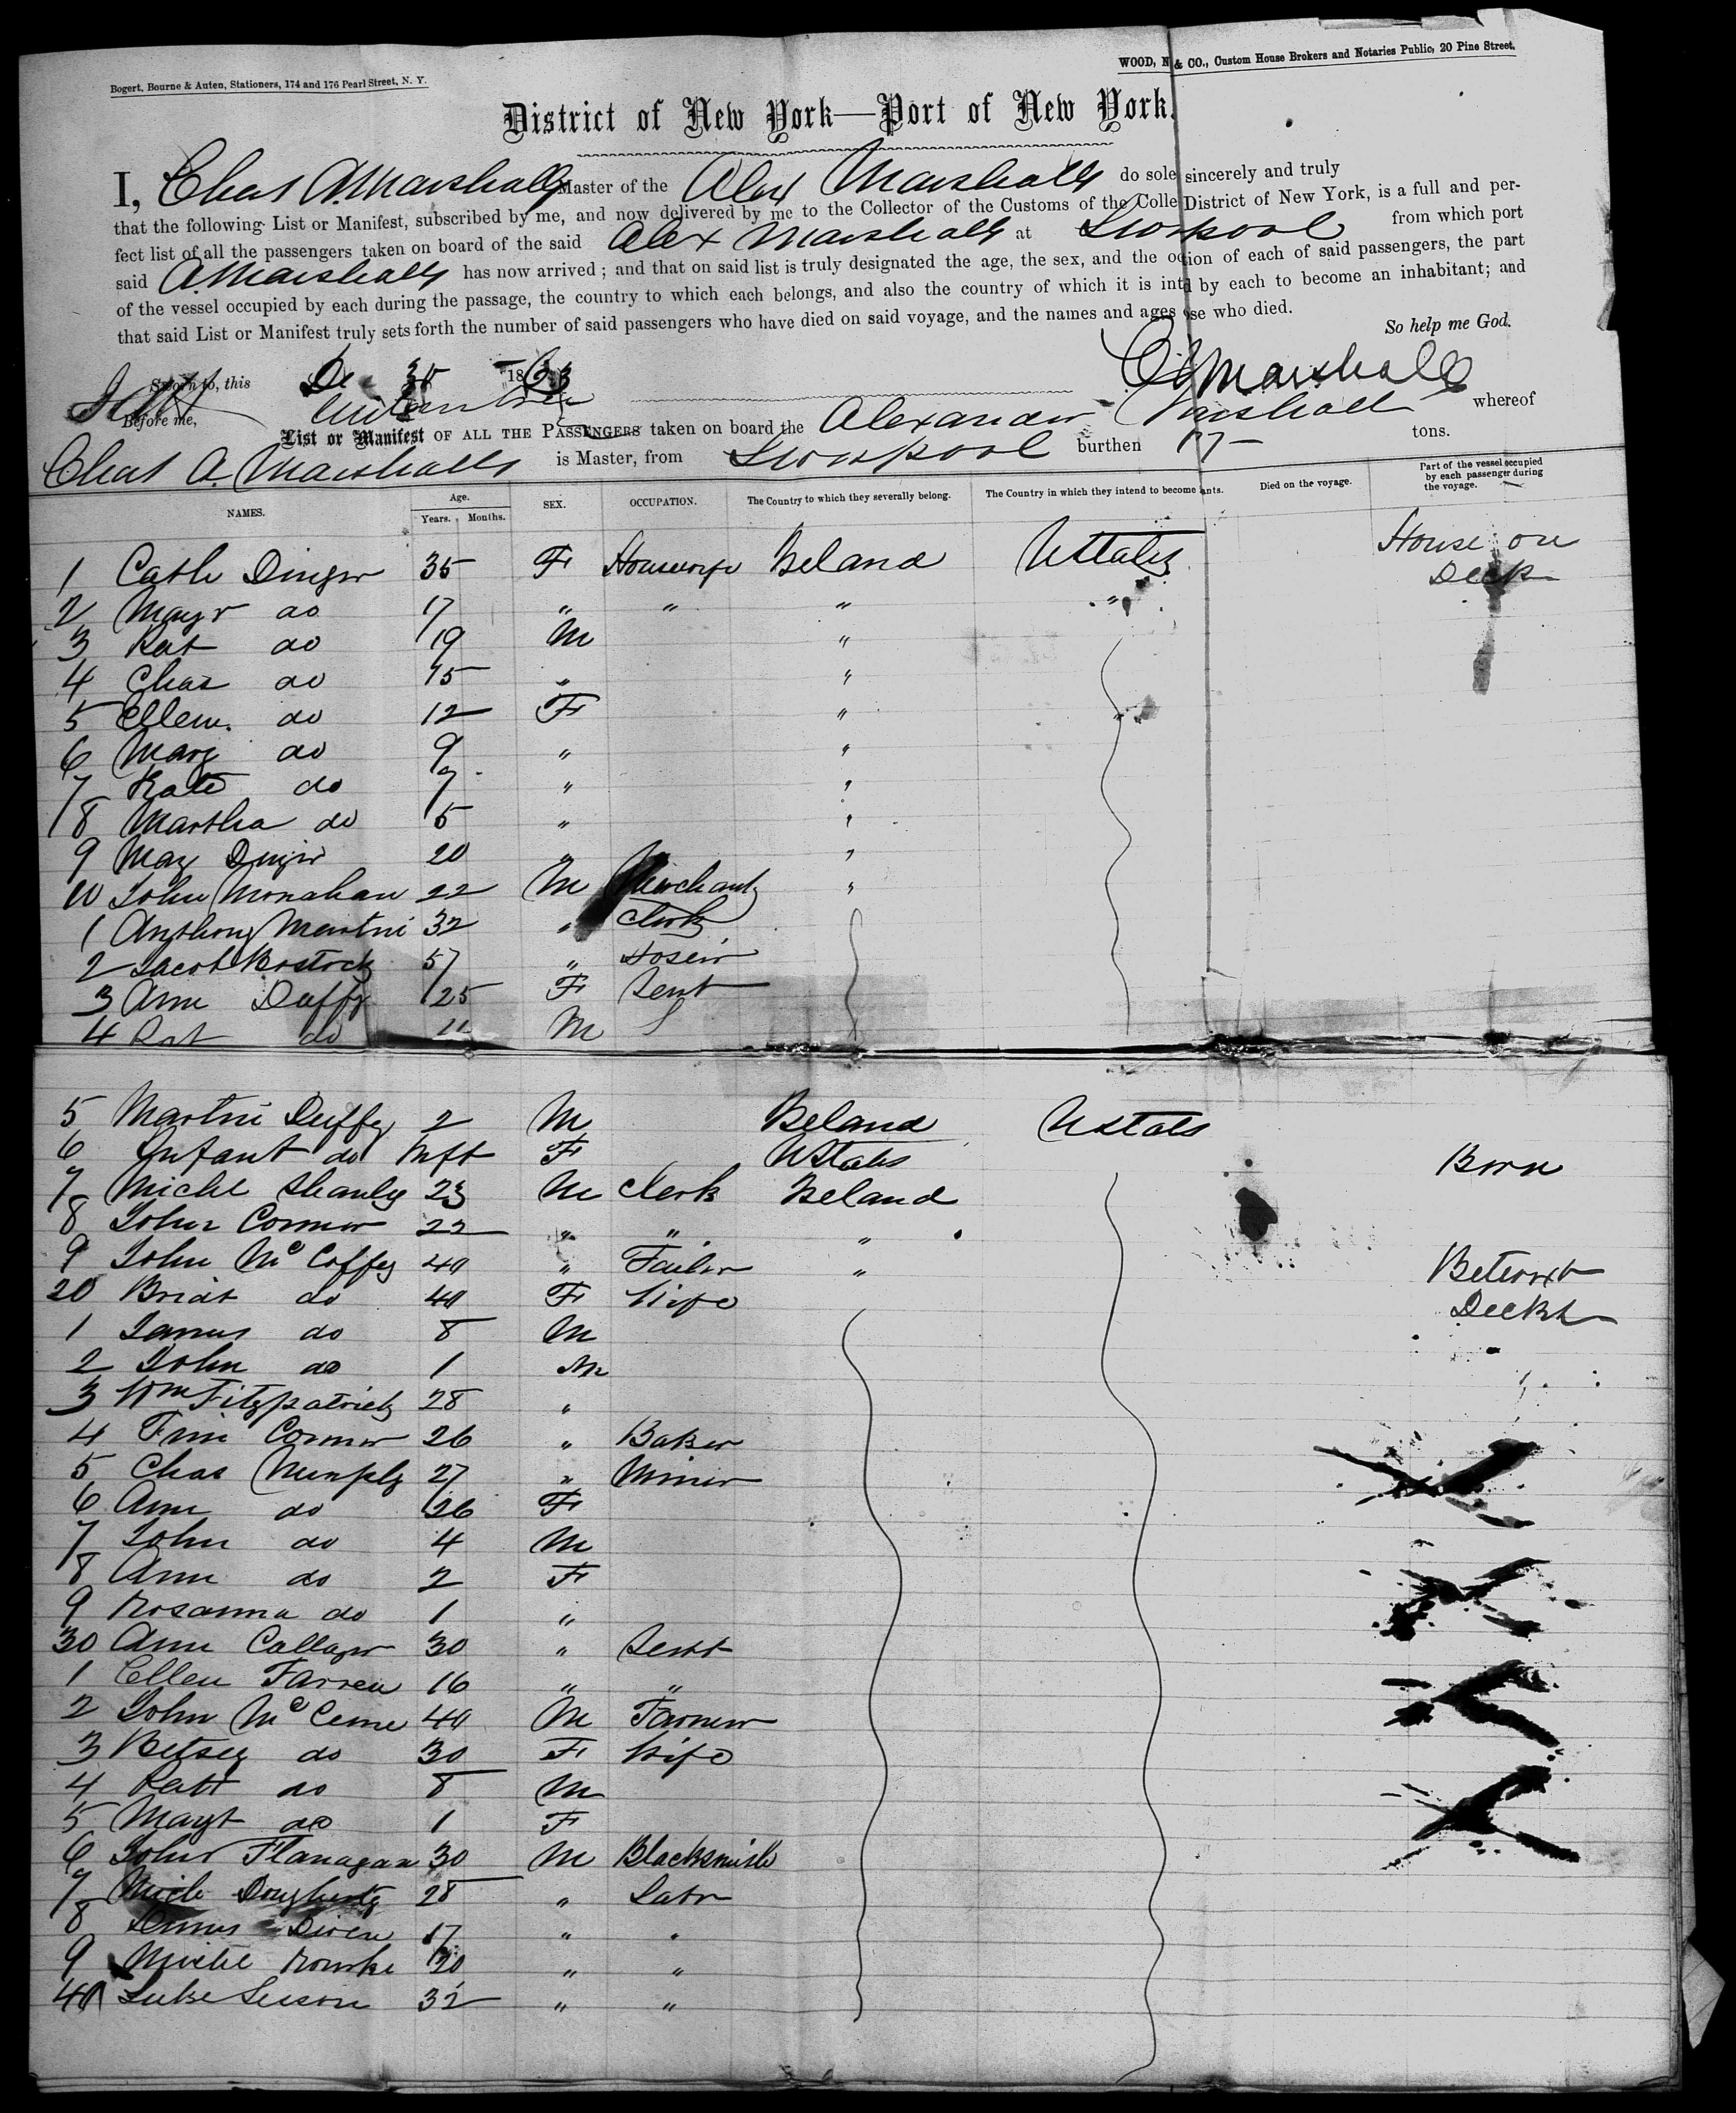 Bogert, Bourne & Auten, Stationers, 174 and 176 Pearl Street, N. Y.
WOOD, N & CO., Custom House Brokers and Notaries Public, 20 Pine Street.
District of New York—Port of New York.
I, Chas A. Marshall Master of the Alex Marshall do sole sincerely and truly
that the following List or Manifest, subscribed by me, and now delivered by me to the Collector of the Customs of the Colle District of New York, is a full and per-
fect list of all the passengers taken on board of the said Alex Marshall at Liverpool from which port
said A. Marshall has now arrived; and that on said list is truly designated the age, the sex, and the o tion of each of said passengers, the part
of the vessel occupied by each during the passage, the country to which each belongs, and also the country of which it is int d by each to become an inhabitant; and
that said List or Manifest truly sets forth the number of said passengers who have died on said voyage, and the names and ages se who died.
So help me God.
Sworn to, this 1863
C A Marshall
Before me,
List or Manifest OF ALL THE PASSENGERS taken on board the Alexander Marshall whereof
Chas A. Marshall is Master, from Liverpool burthen tons.
NAMES. Age. Years. Months. SEX. OCCUPATION. The Country to which they severally belong. The Country in which they intend to become ants. Died on the voyage. Part of the vessel occupied by each passenger during the voyage.
1 Cath 35 F Housewife Ireland UStates House on Deck
2 do 17 " " " "
3 Pat do 19 M "
4 Chas do 15 " "
5 Ellen do 12 F " "
6 Marg do 9 " "
7 Kate do 7 " "
8 Martha do 5 " "
9 20 " "
10 John Monahan 22 M Merchant "
1 Anthony Martin 32 " Clerk
2 Jacob Bostock 57 " Hosier
3 Ann Duffy 25 F Servt
4 Pat do 11 M
5 Martin Duffy 2 M Ireland UStates
6 Infant do Inft F UStates Born
7 Michl Shanley 23 M Clerk Ireland
8 John Connor 22 " " "
9 John McCoffey 40 " Tailor " Betwixt
20 Bridt do 40 F Wife Decks
1 James do 8 M
2 John do 1 M
3 Wm Fitzpatrick 28 "
4 Connor 26 " Baker
5 Chas Murphy 27 " Miner
6 Ann do 26 F
7 John do 4 M
8 Ann do 2 F
9 Rosanna do 1 "
30 Ann 30 " Servt
1 Ellen Farren 16 " "
2 John 40 M Farmer
3 Betsey do 30 F Wife
4 do 8 M
5 Magt do 1 F
6 John Flanagan 30 M Blacksmith
7 Mich Dougherty 28 " Labr
8 17 " "
9 Rourke 20 " "
40 Luke 32 " "